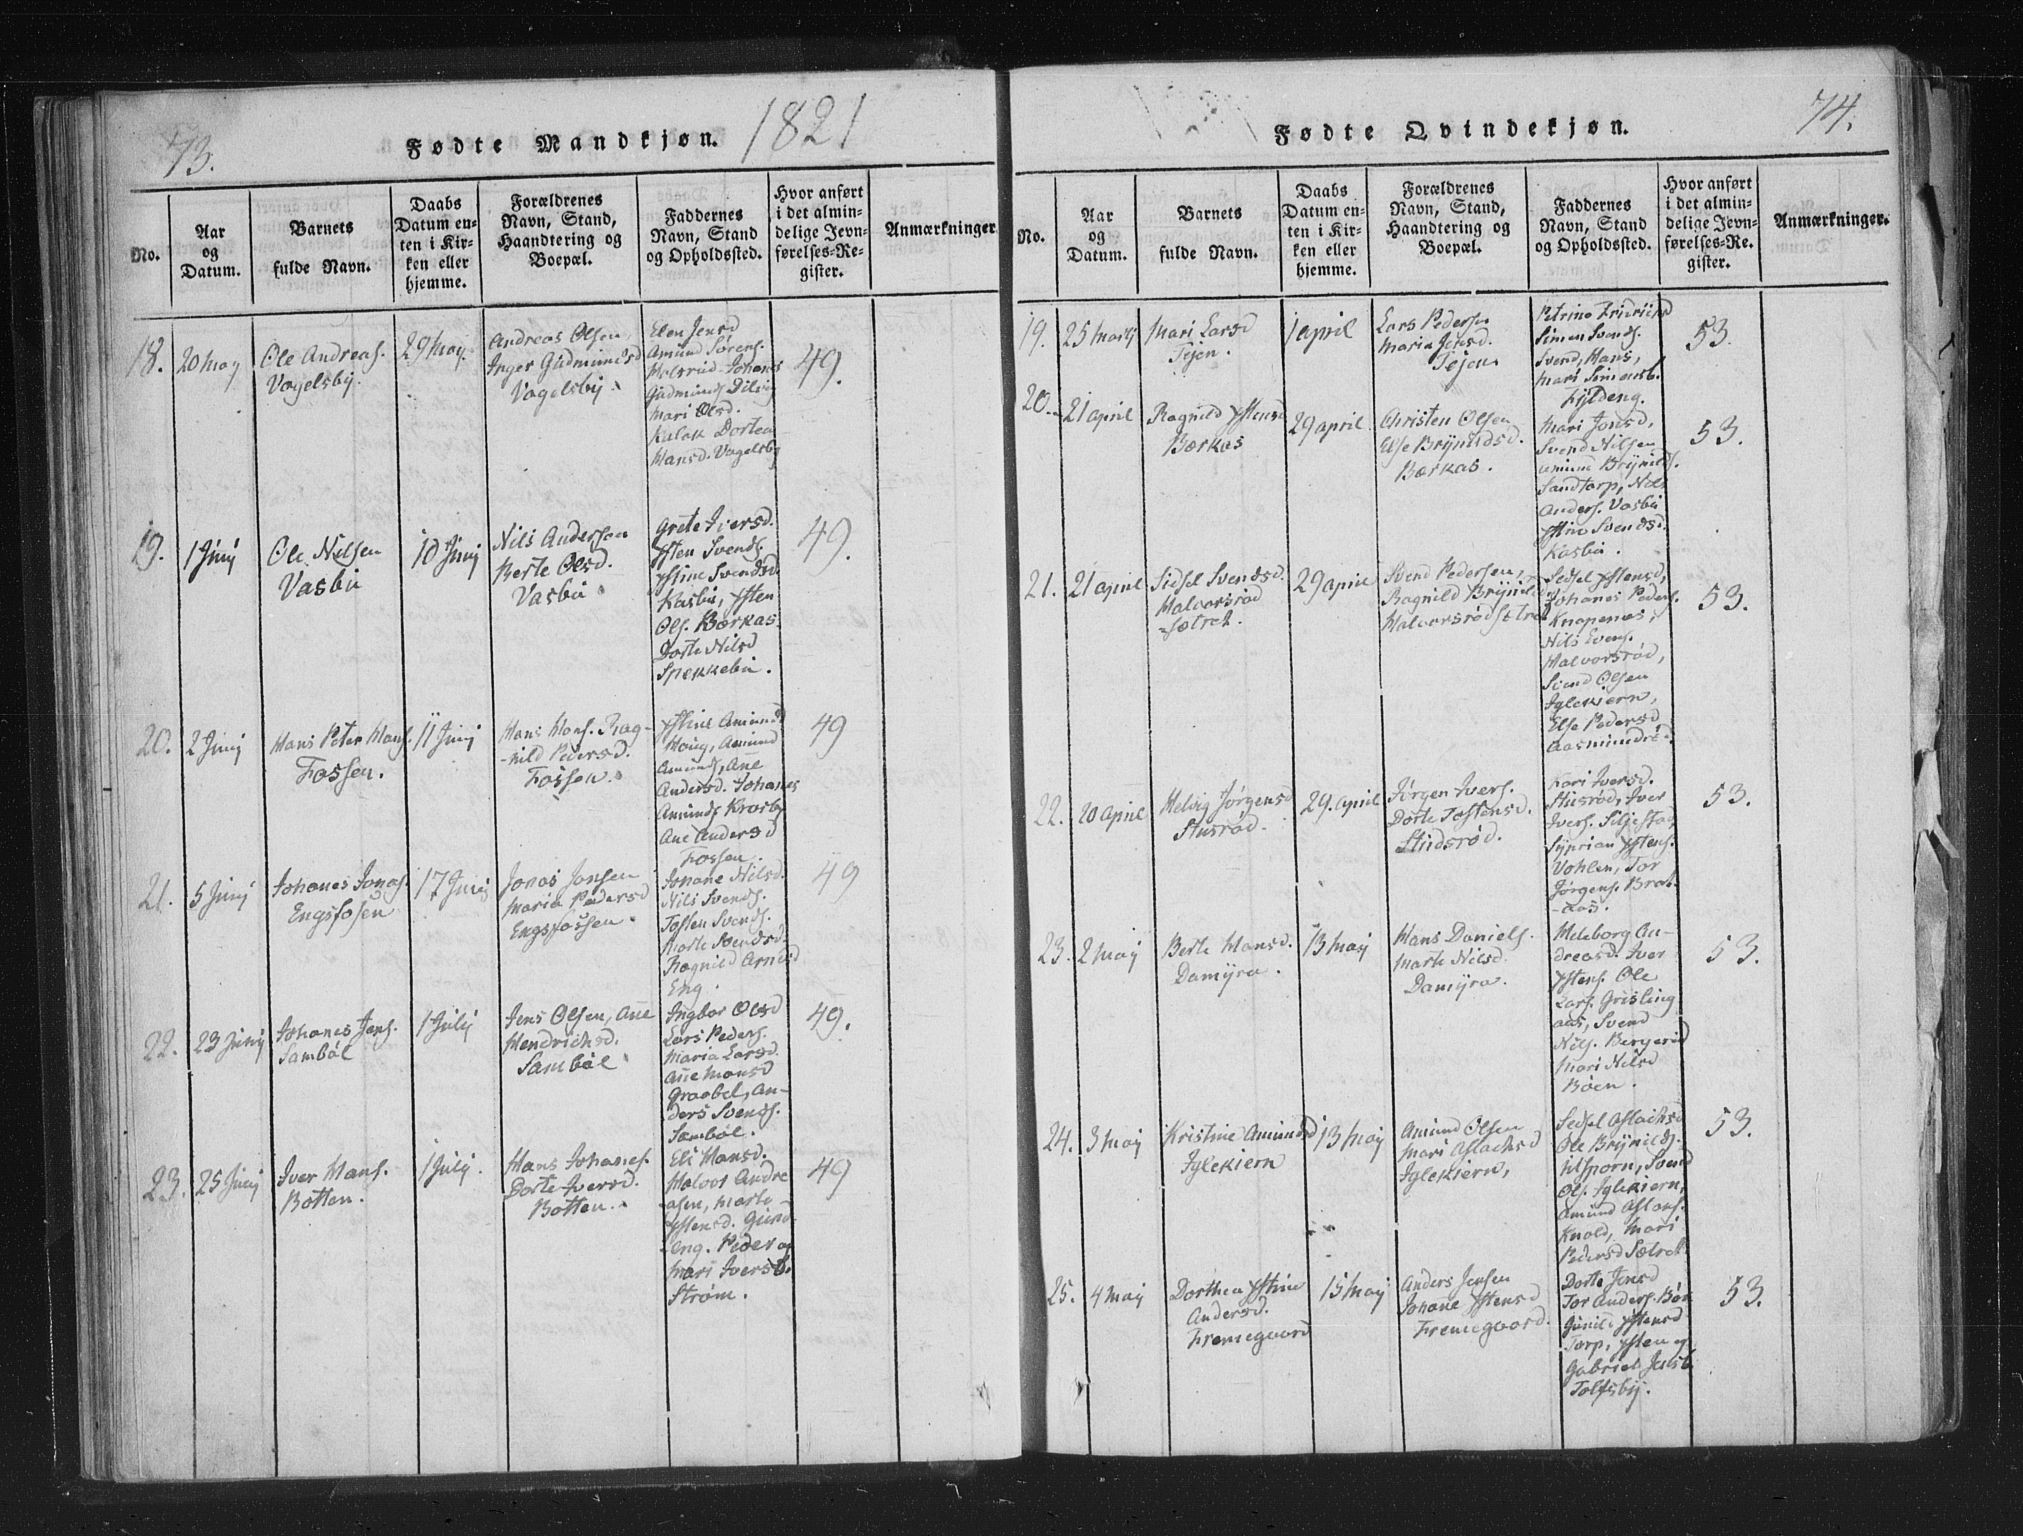 73.
Fødte Mandkjøn. 1821
No.
Aar
og
Datum.
Barnets
fulde Navn.
Daabs
Datum en-
ten i Kir-
ken eller
hjemme.
Forældrenes
Navn, Stand,
Haandtering og
Boepæl.
Faddernes
Navn, Stand
og Opholdssted.
Hvor anført
i det almin-
delige Jevn-
førelses-Re-
gister.
Anmærkninger
18.
20 may
Ole Andreas.
Vogelsby.
29 may
Andreas Olsen,
Inger Gudmundsd
Vogelsby.
Elen Jensd
Amund Sørens.
Holsrud Johanes
Gudmunds Dilev
Mari Olsd.
Kalak Dortea
Hansd. Vogelsby
49.
19.
1 Junj
Ole Nilsen
Vasbu
10 Junj
Nils Andersen
Berte Olsd.
Vasbu
Grete Iversd.
Østen Svends.
Østine Svendsd.
Kasbu, Østen
Ols. Bærkas.
Dorte Nilsd
Spekkebu.
49.
20.
2 Junj
Hans Peter Hans.
Fossen.
11 Junj
Hans Hans. Rag-
-nild Pedersd.
Fossen
Østine Amunds
Houg, Amund
Amunds, Ane
Andersd. Johanes
Amunds Krosby
Ane Andersd
Fossen.
49
21.
5 Junj
Johanes Jonas.
Engsfosen
17 Junj
Jonas Jonsen
Maria Pedersd
Engsfossen.
Johane Nilsd.
Nils Svends.
Tosten Svends.
Marte Svendsd.
Ragnild Arnesd
Eng.
49
22.
23 Junj
Johanes Jens.
Sambøl
1 Julj
Jens Olsen, Ane
Hendrichsd.
Sambøl
Ingbor Olsd
Lars Peders.
Maria Larsd.
Ane Monsd
Graabel, An-
ders Svends.
Sambøl.
49.
23.
25 Junj
Iver Hans.
Botten.
1 Julj
Hans Johanes.
Dorte Iversd.
Botten.
Eli Hansd.
Halvor Andre
asen, Marte
Østensd. Gund-
eng. Peder og
Mari Iversb.
Strøm.
49
74.
Fødte Qvindekjøn.
No.
Aar
og
Datum.
Barnets
fulde Navn.
Daabs
Datum en-
ten i Kir-
ken eller
hjemme.
Forældrenes
Navn, Stand,
Haandtering og
Boepæl.
Faddernes
Navn, Stand
og Opholdssted.
Hvor anført
i det almin-
delige Jevn-
førelses-Re-
gister.
Anmærkninger.
19.
25 marts
Mari Larsd
Tejen.
1 april
Lars Pedersen
Maria Jensd.
Tejen
Petrine Fridrichsd
Simen Svends.
Svend, Hans,
Mari Simensb.
Fyldeng.
53.
20.
21 april
Ragnild Østensd
Bærkas
29 april
Christen Olsen
Else Brynildsd.
Bærkas.
Mari Jonsd,
Svend Nilsen
Amund Brynilds.
Sandtorp, Nils
Anders. Vasbu
Østine Svendsd.
Kasbu.
53.
21.
21 april
Sidsel Svendsd.
Halvorsrød
-sætret.
29 april
Svend Pedersen,
Ragnild Brynild
Halvorsrødsetret
Sedsel Østensd,
Johanes Peders.
Knapenæs,
Nils Evens.
Halvorsrød,
Svend Olsen
Iglekiern,
Else Pedersd
Aasmundrø.
53.
22.
20 april
Helvig Jørgensd
Stusrød.
29. april
Jørgen Ivers.
Dorte Tostensd.
Studsrød.
Kari Iversd.
Stusrød, Iver
Ivers. Siljestad
Syprian Østens.
Vohlen, Tor
Jørgens. Brat-
-aas.
53.
23.
2 may
Berte Hansd.
Damyra.
13 may
Hans Daniels.
Marte Nilsd.
Damyra.
Heleborg An-
dreasd. Iver
Østens. Ole
Lars. Grisling
aas, Svend
Nils. Bergerød
Mari Nilsd
Bøen.
53.
24.
3 may
Kristine Amundsd
Iglekiern
13 may
Amund Olsen
Mari Aslachsd
Iglekiern,
Sedsel Aslachsd
Ole Brynilds.
Ulsporn, Svend
Ols. Iglekiern,
Amund Aslaks.
Knold, Mari
Pedersd Sætret
53.
25.
4 may
Dorthea Østine
Andersd.
Fremegaard
15 may
Anders Jensen
Johane Østensd
Fremegaard.
Dorte Jensd
Tor Anders. Bøe
Gunild Østensd
Torp, Østen og
Gabriel Jensb.
Tolfsby.
53.